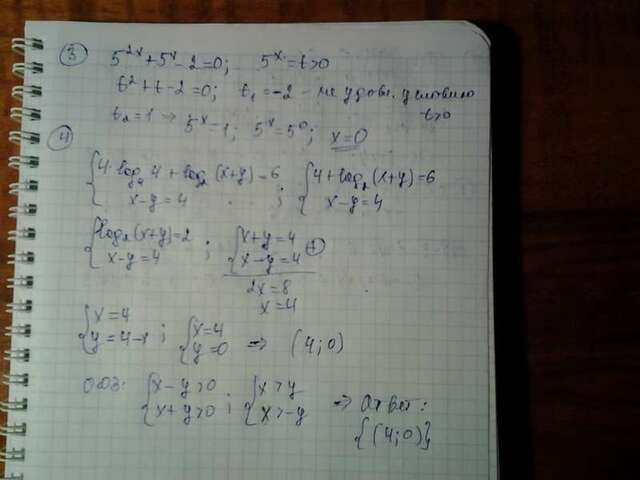 ③ 5^{2x}+5^x-2=0; 5^x=t>0
t²+t-2=0; t₁=-2 - не удовл. условию t>0
t₂=1 ⇒ 5^x=1; 5^x=5⁰; x=0
④
{4·log₄4+log₂(x+y)=6 ; {4+log₂(x+y)=6
x-y=4 x-y=4
{log₂(x+y)=2 ; {x+y=4
x-y=4 x-y=4 (+)
2x=8
x=4
{x=4 ; {x=4 ⇒ (4;0)
y=4-x y=0
ОДЗ: {x-y>0 ; {x>y ⇒ Ответ:
x+y>0 x>-y {(4;0)}